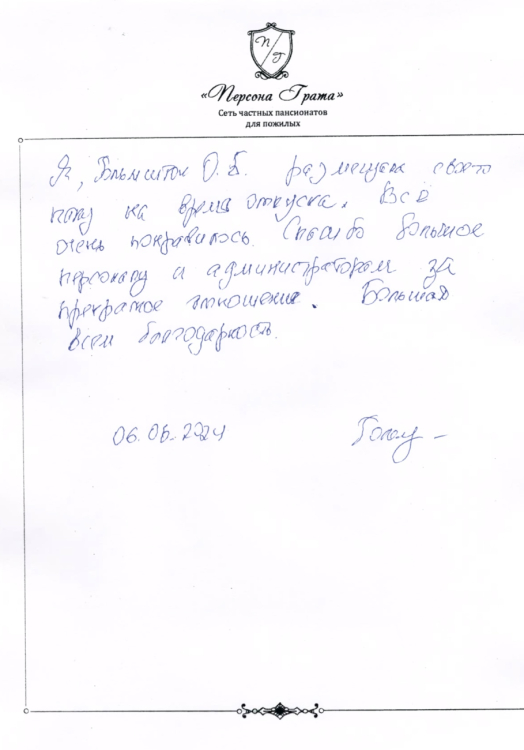 П Г
«Персона Грата»
Сеть частных пансионатов
для пожилых
Я, О. Б. размещал своего
папу на время отпуска. Всё
очень понравилось. Спасибо большое
персоналу и администраторам за
прекрасное отношение. Большая
всем благодарность.
06.06.2024